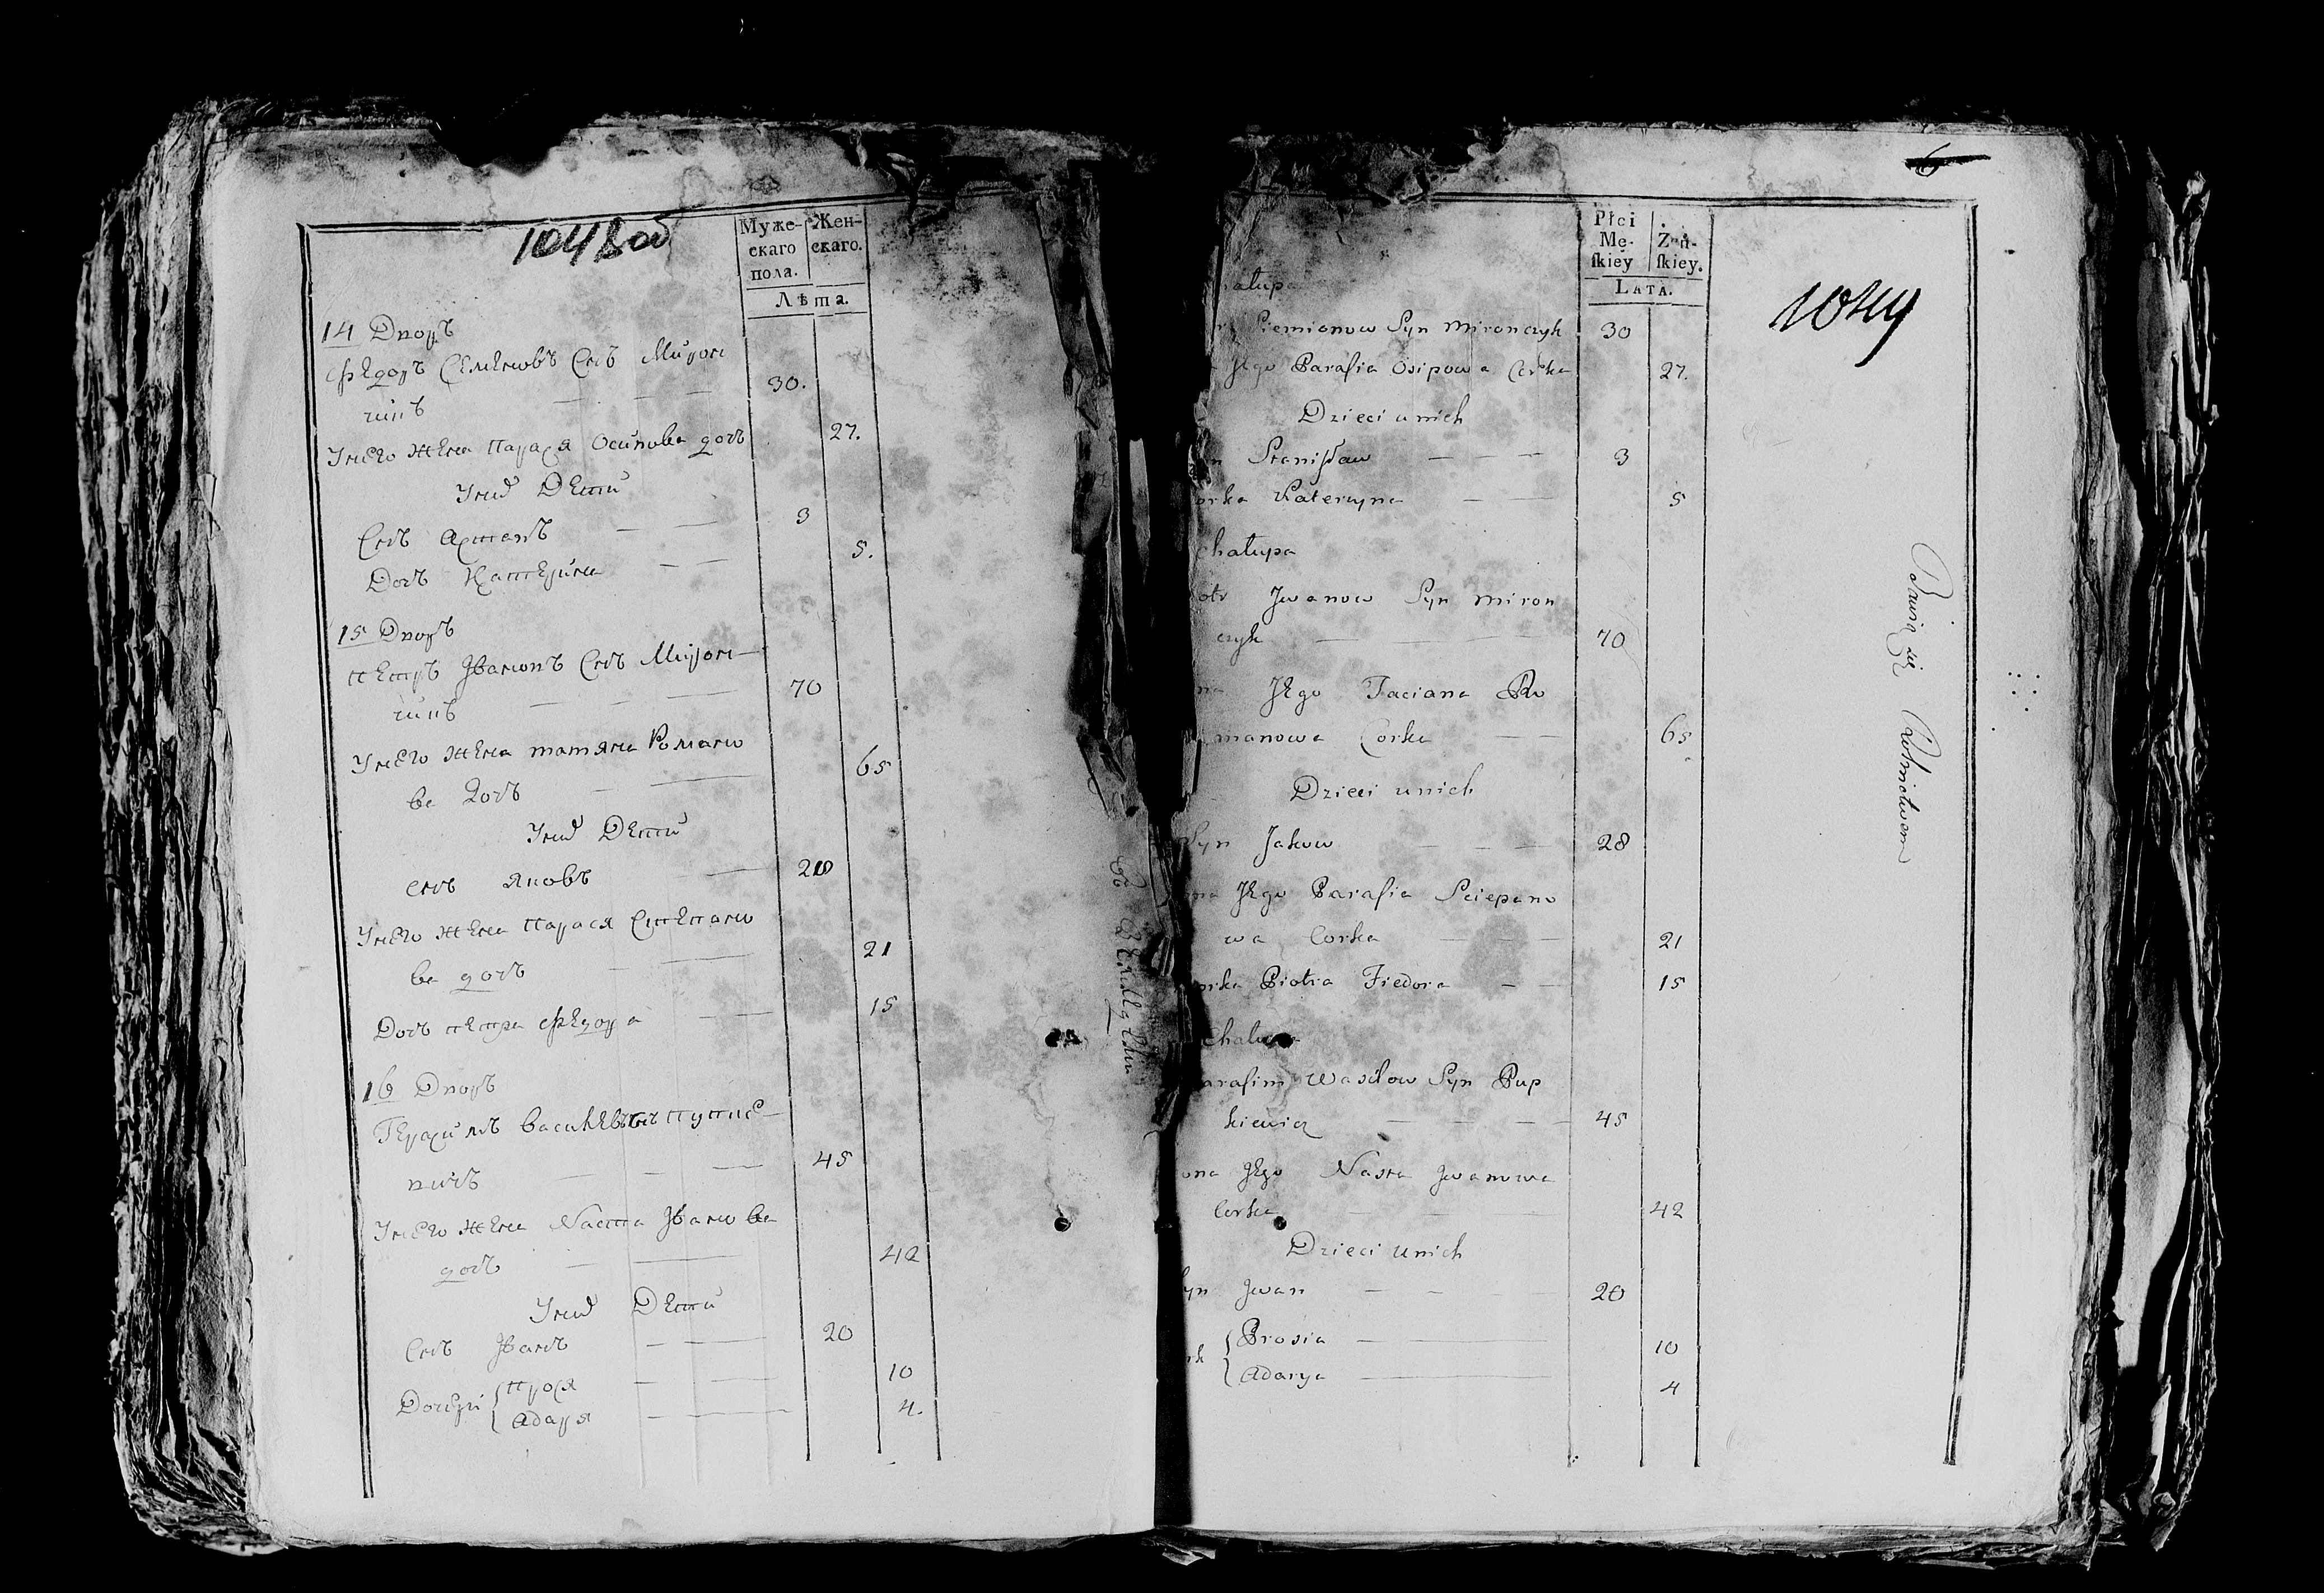 Муже-
скаго
пола.
Жен-
скаго.
Лѣта.
14 Дворъ
Федоръ Семеновъ Снъ Мирон
чикъ 30.
Унего жена Парася Осипова дочъ 27.
Унихъ Дети
Снъ Астапъ 3
Дочъ Катерина 5.
15 Дворъ
Петръ Јвановъ Снъ Мирон
чикъ 70
Унего жена татяна Романо
ва дочъ 65
Унихъ Дети
снъ Яковъ 28
Унего жена Парася Степано
ва дочъ 21
Дочъ петра Федора 15
16 Дворъ
Герасимъ Василевъ Снъ Пупке
вичъ 45
Унего жена Наста Јванова
дочъ 42
Унихъ Дети
Снъ Јванъ 20
Дочери Прося 10
Адаря 4.
6
Płci
Mę-
skiey
Żeń-
skiey.
LATA.
hałup
Siemionow Syn Mironczyk 30
Jego Parasia Osipowa Corka 27.
Dzieci unich
n Stanisław 3
orka Kateryna 5
chałupa
otr Jwanow Syn Miron
czyk 70
na Jego Taciana Ro
manowa Corka 65
Dzieci unich
Syn Jakow 28
na Jego Parasia Sciepano
wa Corka 21
orka Piotra Fiedora 15
Chałupa
arasim Wasilow Syn Pup
kiewicz 45
ona Jego Nasta Jwanowa
Corka 42
Dzieci unich
yn Jwan 20
rk Prosia 10
Adarya 4